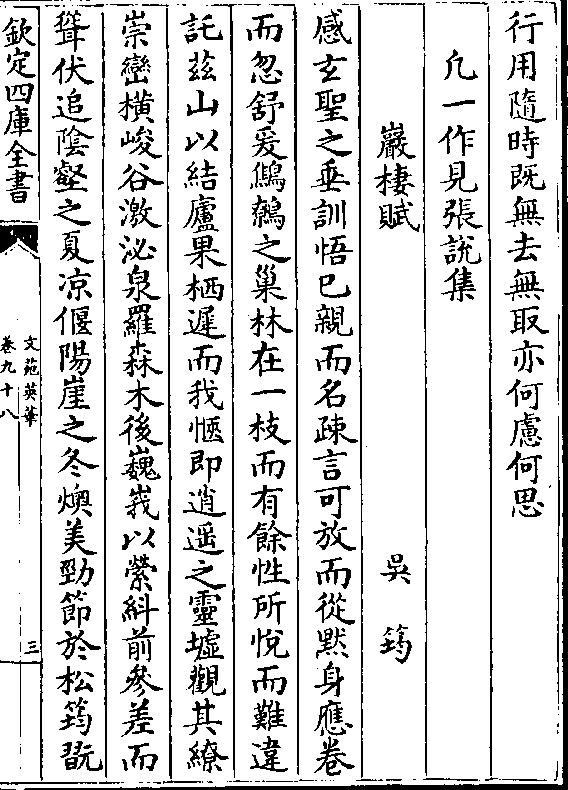 行用隨時既無去無取亦何慮何思
凢一作見張說集
巖棲賦 吳筠
感玄聖之垂訓悟已親而名疎言可放而從黙身應卷
而忽舒爰鷦鷯之巢林在一枝而有餘性所恱而難違
託茲山以結廬果栖遲而我愜即逍遥之靈墟觀其繚
崇巒橫峻谷激泌泉羅森木後巍峩以縈紏前參差而
聳伏追陰壑之夏凉偃陽崖之冬燠美勁節於松筠翫
欽定四庫全書
文苑英華
卷九十八
三